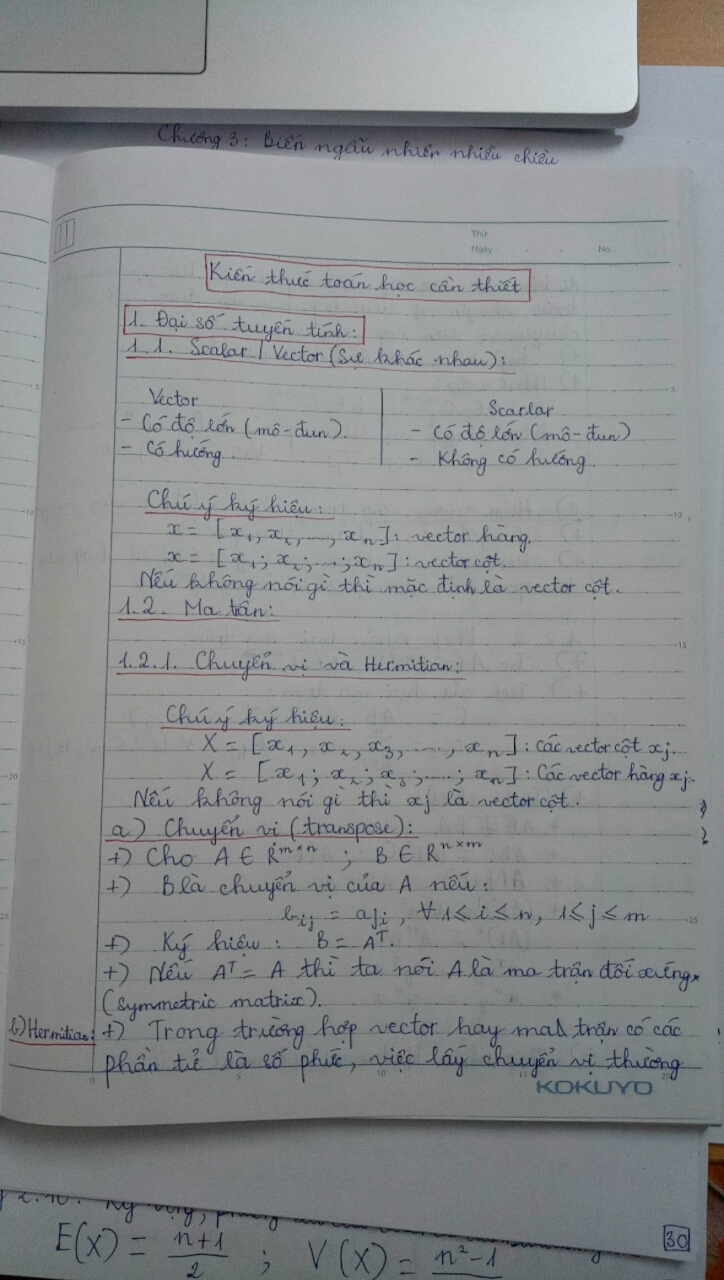 Chương 3: Biến ngẫu nhiên nhiều chiều
Thứ
Ngày . . No.
Kiến thức toán học cần thiết
1. Đại số tuyến tính:
1.1. Scalar / Vector (Sự khác nhau):
Vector
- Có độ lớn (mô-đun).
- Có hướng.
Scarlar
- Có độ lớn (mô-đun)
- Không có hướng.
Chú ý ký hiệu:
x = [x₁, x₂, ..., xₙ]: vector hàng.
x = [x₁; x₂; ...; xₙ]: vector cột.
Nếu không nói gì thì mặc định là vector cột.
1.2. Ma trân:
1.2.1. Chuyển vị và Hermitian:
Chú ý ký hiệu:
X = [x₁, x₂, x₃, ..., xₙ]: Các vector cột xj.
X = [x₁; x₂; x₃; ...; xₙ]: Các vector hàng xj.
Nếu không nói gì thì xj là vector cột.
a) Chuyển vị (transpose):
+) Cho A ∈ ℝᵐˣⁿ ; B ∈ ℝⁿˣᵐ
+) B là chuyển vị của A nếu:
bᵢⱼ = aⱼᵢ, ∀ 1 ≤ i ≤ n, 1 ≤ j ≤ m
+) Ký hiệu: B = Aᵀ.
+) Nếu Aᵀ = A thì ta nói A là ma trận đối xứng
(symmetric matrix).
b) Hermitian: +) Trong trường hợp vector hay trận có các
phần tử là số phức, việc lấy chuyển vị thường
KOKUYO
30
E(X) = (n+1)/2 ; V(X) = n²-1